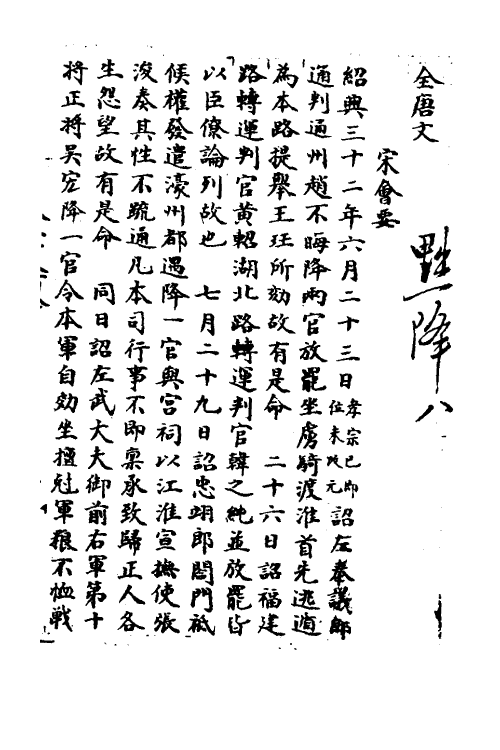 全唐文
宋會要
黜降八
紹興三十二年六月二十三日孝宗已即位未改元詔左奉議郎
通判通州趙不晦降兩官放罷坐虜騎渡淮首先逃遁
為本路提舉王珏所劾故有是命　二十六日詔福建
路轉運判官黃韜湖北路轉運判官韓之純並放罷皆
以臣僚論列故也　七月二十九日詔忠翊郎閤門祗
候權發遣濠州都遇降一官與宮祠以江淮宣撫使張
浚奏其性不疏通凡本司行事不即稟承致歸正人各
生怨望故有是命　同日詔左武大夫御前右軍第十
將正將吳宏降一官令本軍自効坐擅尅軍糧不恤戰